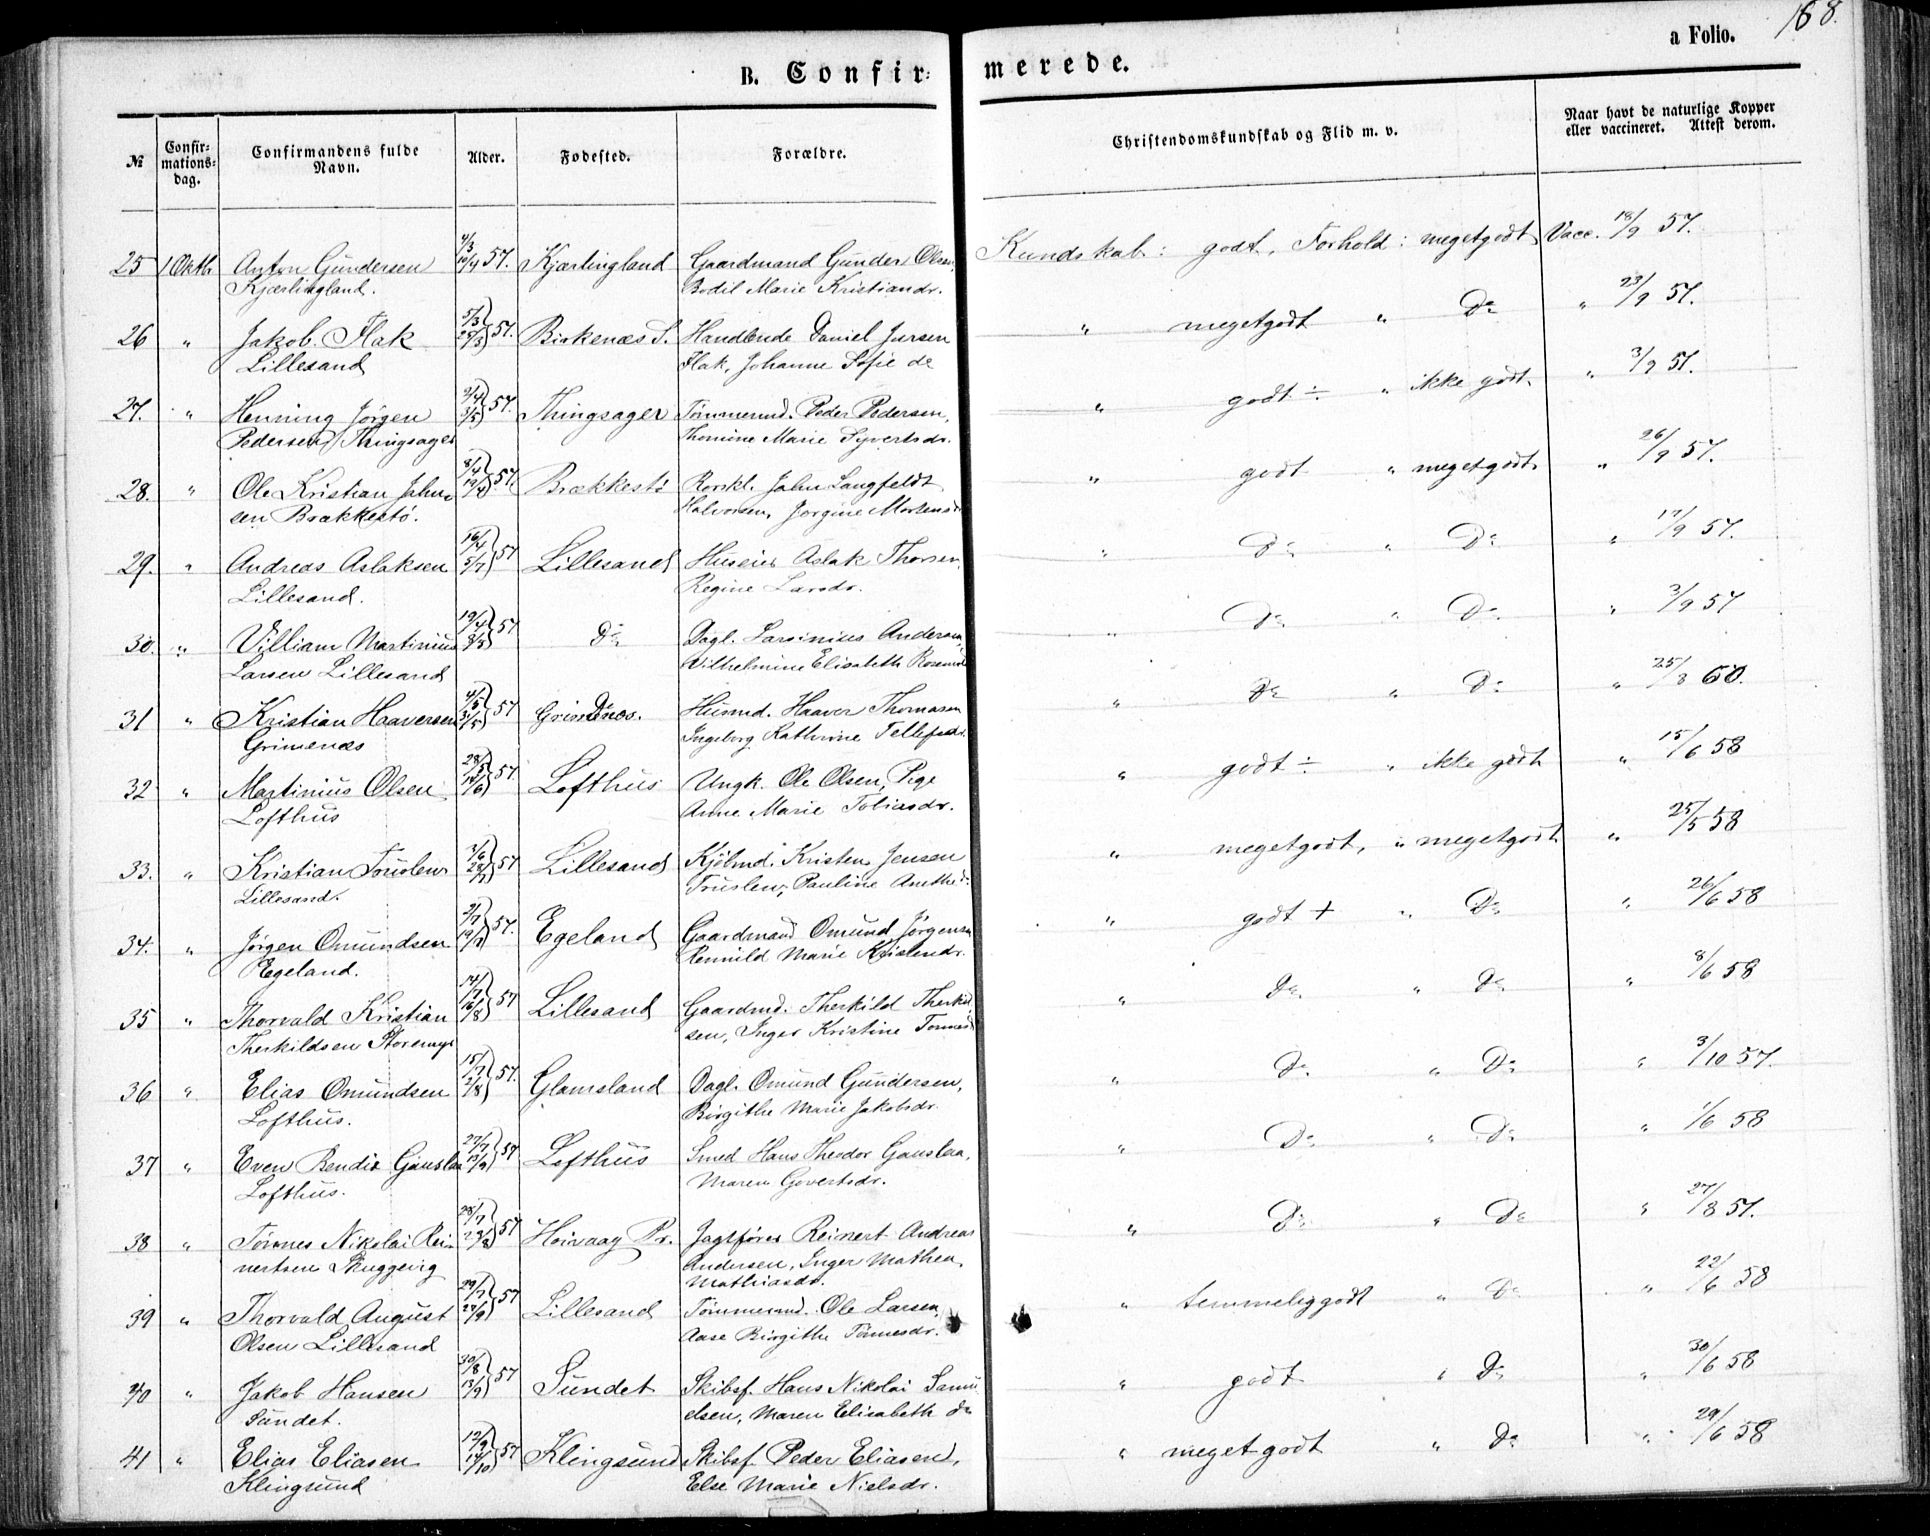 168.
a Folio.
B. Confir-
merede.
№
Confir-
mations-
dag.
Confirmandens fulde
Navn.
Alder.
Fødested.
Forældre.
Christendomskundskab og Flid m. v.
Naar havt de naturlige Kopper
eller vaccineret. Attest derom.
25 1 Oktb Anton Gundersen 4/3 19/4 57. Kjærlingland Gaardmand Gunder Olsen, Kundskab: godt, Forhold: megetgodt Vacc. 18/9 57.
Kjærlingland. Bodil Marie Kristiandr.
26 " Jakob Flak 5/3 29/3 57. Birkenæs S. Handlende Daniel Jursen " megetgodt " Do " 23/9 57.
Lillesand Flak, Johanne Sofie do
27. " Henning Jörgen 2/4 3/5 57. Thingsager Tömmermd. Peder Pedersen, " godt ÷ " ikke godt. " 3/9 57.
Pedersen Thingsager Thomine Marie Syvertsdr.
28. " Ole Kristian Jahn- 8/4 19/4 57. Brækkestö Rorskl. Jahn Langfeldt " godt " megetgodt. " 26/9 57.
sen Brækkestö. Halvorsen, Jørgine Mortensd
29. " Andreas Aslaksen 16/4 5/7 57 Lillesand Huseier Aslak Thorsen, " Do " Do " 17/9 57.
Lillesand. Regine Larsdr.
30. " Villiam Martinius 19/4 3/5 57 Do Dagl. Larsinius Andersen, " Do " Do " 3/9 57
Larsen Lillesand Wilhelmine Elisabeth
31 " Kristian Haaversen 4/5 31/5 57 Grimenæs. Husmd. Haaver Thomasen " Do " Do " 25/8 60.
Grimenæs Ingeborg Kathrine Tellefsdr.
32 " Martinius Olsen 28/5 14/6 57. Lofthus Ungk. Ole Olsen, Pige " godt ÷ " ikke godt " 15/6 58
Lofthus Anne Marie Tobiasdr.
33. " Kristian Truslew 3/6 57 Lillesand Kjöbmd. Kristen Jensen " megetgodt, " megetgodt " 25/5 58
Lillesand. Truslew, Pauline Anethe do
34. " Jörgen Omundsen 3/7 19/7 57. Egeland Gaardmand Omund Jörgensen " godt + " Do " 26/6 58
Egeland. Marie Kristendr.
35 " Thorvald Kristian 14/7 16/8 57 Lillesand Gaardmd. Therkild Therkild " Do " Do " 8/6 58
Therkildsen Storemyr sen, Inger Kristine Tönnesd
36 " Elias Omundsen 15/7 2/8 57. Glamsland Dagl. Omund Gundersen, " Do " Do " 3/10 57.
Lofthus. Birgithe Marie Jakobsdr.
37 " Even Bendix Gauslaa 27/7 13/9 57 Lofthus Smed Hans Theodor Gauslaa, " Do " Do " 1/6 58
Lofthus. Maren Govertsdr.
38 " Tönnes Nikolai Rei- 28/7 23/8 57 Höivaag Pr. Jagtförer Reinert Andreas " Do " Do " 27/8 57.
nertsen Skuggevig Andersen, Inger Mathea
Mathiasdr.
39 " Thorvald August 29/7 27/9 57 Lillesand Tömmermd. Ole Larsen, " temmeliggodt " Do " 22/6 58
Olsen Lillesand Aase Birgithe Tönnesdr.
40 " Jakob Hansen 30/8 13/9 57 Sundet Skibsf. Hans Nikolai Samu " godt " Do " 30/6 58
Sundet. elsen, Maren Elisabeth do
41 " Elias Eliasen 12/9 14/10 57 Klingsund Skibsf. Peder Eliasen, " megetgodt " Do " 29/6 58
Klingsund Else Marie Nielsdr.